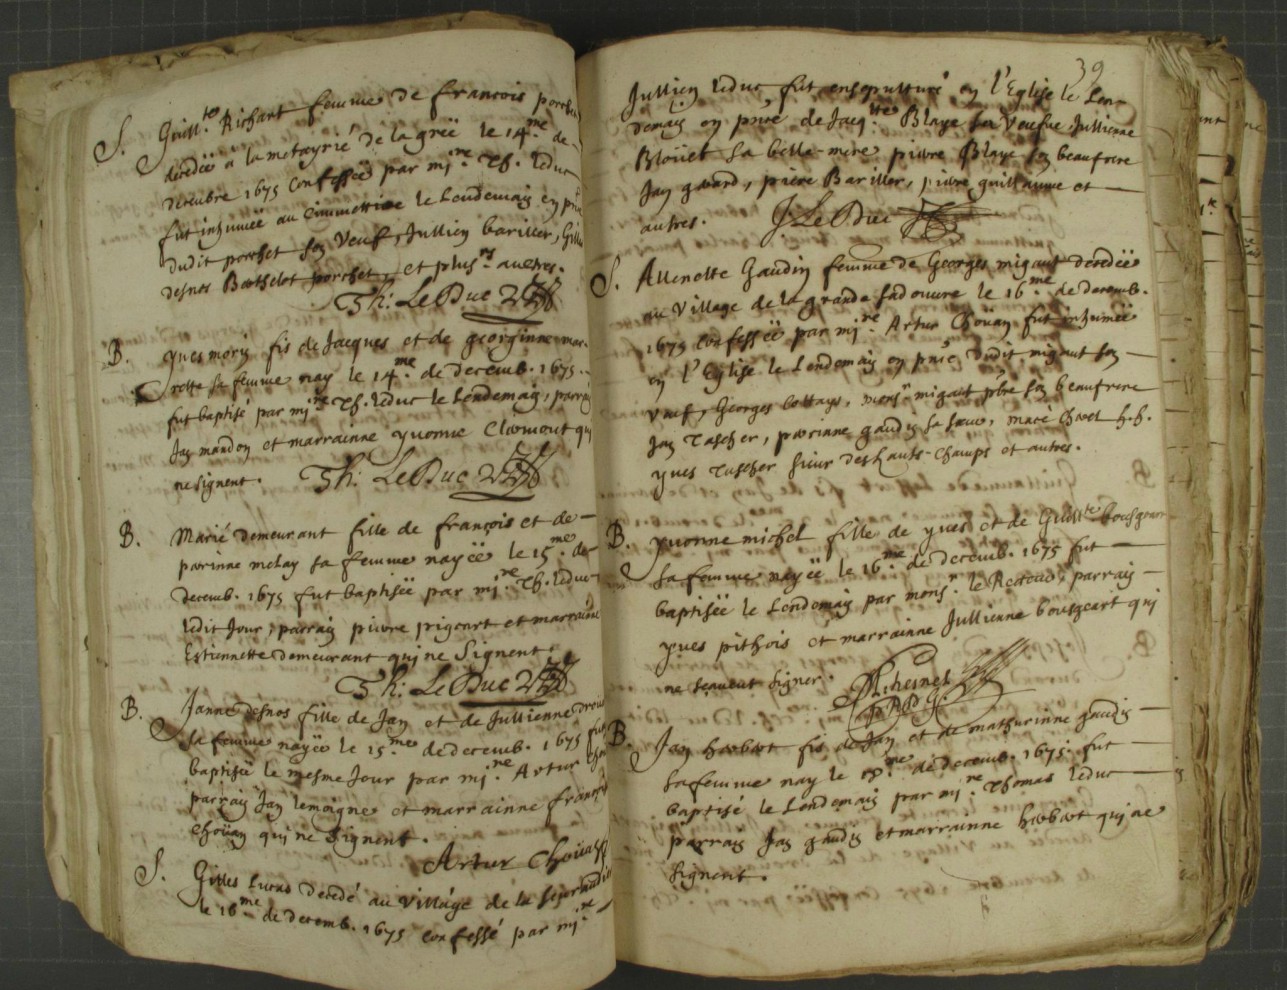 S. Guill.te Richart femme de francois porchet
décédëë à la metayrie de la greë le 14.me de-
cembre 1675 Confessëë par mi.re Th. leduc
fut inhumëë au cimmettiere le Lendemain en pñce
dudit porchet son veuf, Jullien bariller, Gilles
desnos Barthelot porchet, et plus.rs aultres.
Th: Le Duc
B. yves morin fis de Jacques et de georginne mar-
sa femme nay le 14.me de decemb. 1675.
fut baptisé par mi.re Th. leduc le Lendemain, parrain
Jan mandon et marrainne yvonne Clemont qui
ne signent. Th: Le Duc
B. Marie demeurant fille de francois et de
perinne melay sa femme nayëë le 15.me de
decemb. 1675 fut baptisëë par mi.re Th. leduc
ledit Jour, parrain pierre pigeart et marrainne
Estiennette demeurant qui ne Signent.
Th: Le Duc
B. Janne desnos fille de Jan et de Jullienne
sa femme nayëë le 15.me de decemb. 1675 fut
baptisëë le mesme Jour par mi.re Artur
parrain Jan lemoigne et marrainne
Choüan qui ne Signent.
Artur Choüan
S. Gilles décédé au village de la
le 16.me de decemb. 1675 confessé par mi.re
39
Jullien leduc fut ensepulturé en l'Eglise le Len-
demain en pñce de Jacq.tte Blaye sa veufve Jullienne
Bloüet sa belle-mere pierre Blaye son beaufrere
Jan gavard, pierre Bariller, pierre guillaume et
autres. J. Le Duc
S. Allenette Gaudin femme de Georges migaut décédëë
au village de la grande le 16.me de decemb.
1675 confessëë par mi.re Artur Choüan fut inhumëë
en l'Eglise le Lendemain en pñce dudit migaut son
veuf, Georges bottays, mons.r migaut pbre son beaufrere
Jan Tascher, perinne gaudin sa soeur, macé
yves Tascher sieur des hauts-champs et autres.
B. yvonne michel fille de yves et de Guill.te
sa femme nayëë le 16.me de decemb. 1675 fut
baptisëë le Lendemain par mons.r le Recteur, parrain
yves pithois et marrainne Jullienne bousgeart qui
ne scauent signer.
B. Jan herbert fis de Jan et de mathurinne gaudin
sa femme nay le de decemb. 1675. fut
baptisé le Lendemain par mi.re Thomas leduc
parrain Jan gaudin et marrainne herbert qui ne
signent.